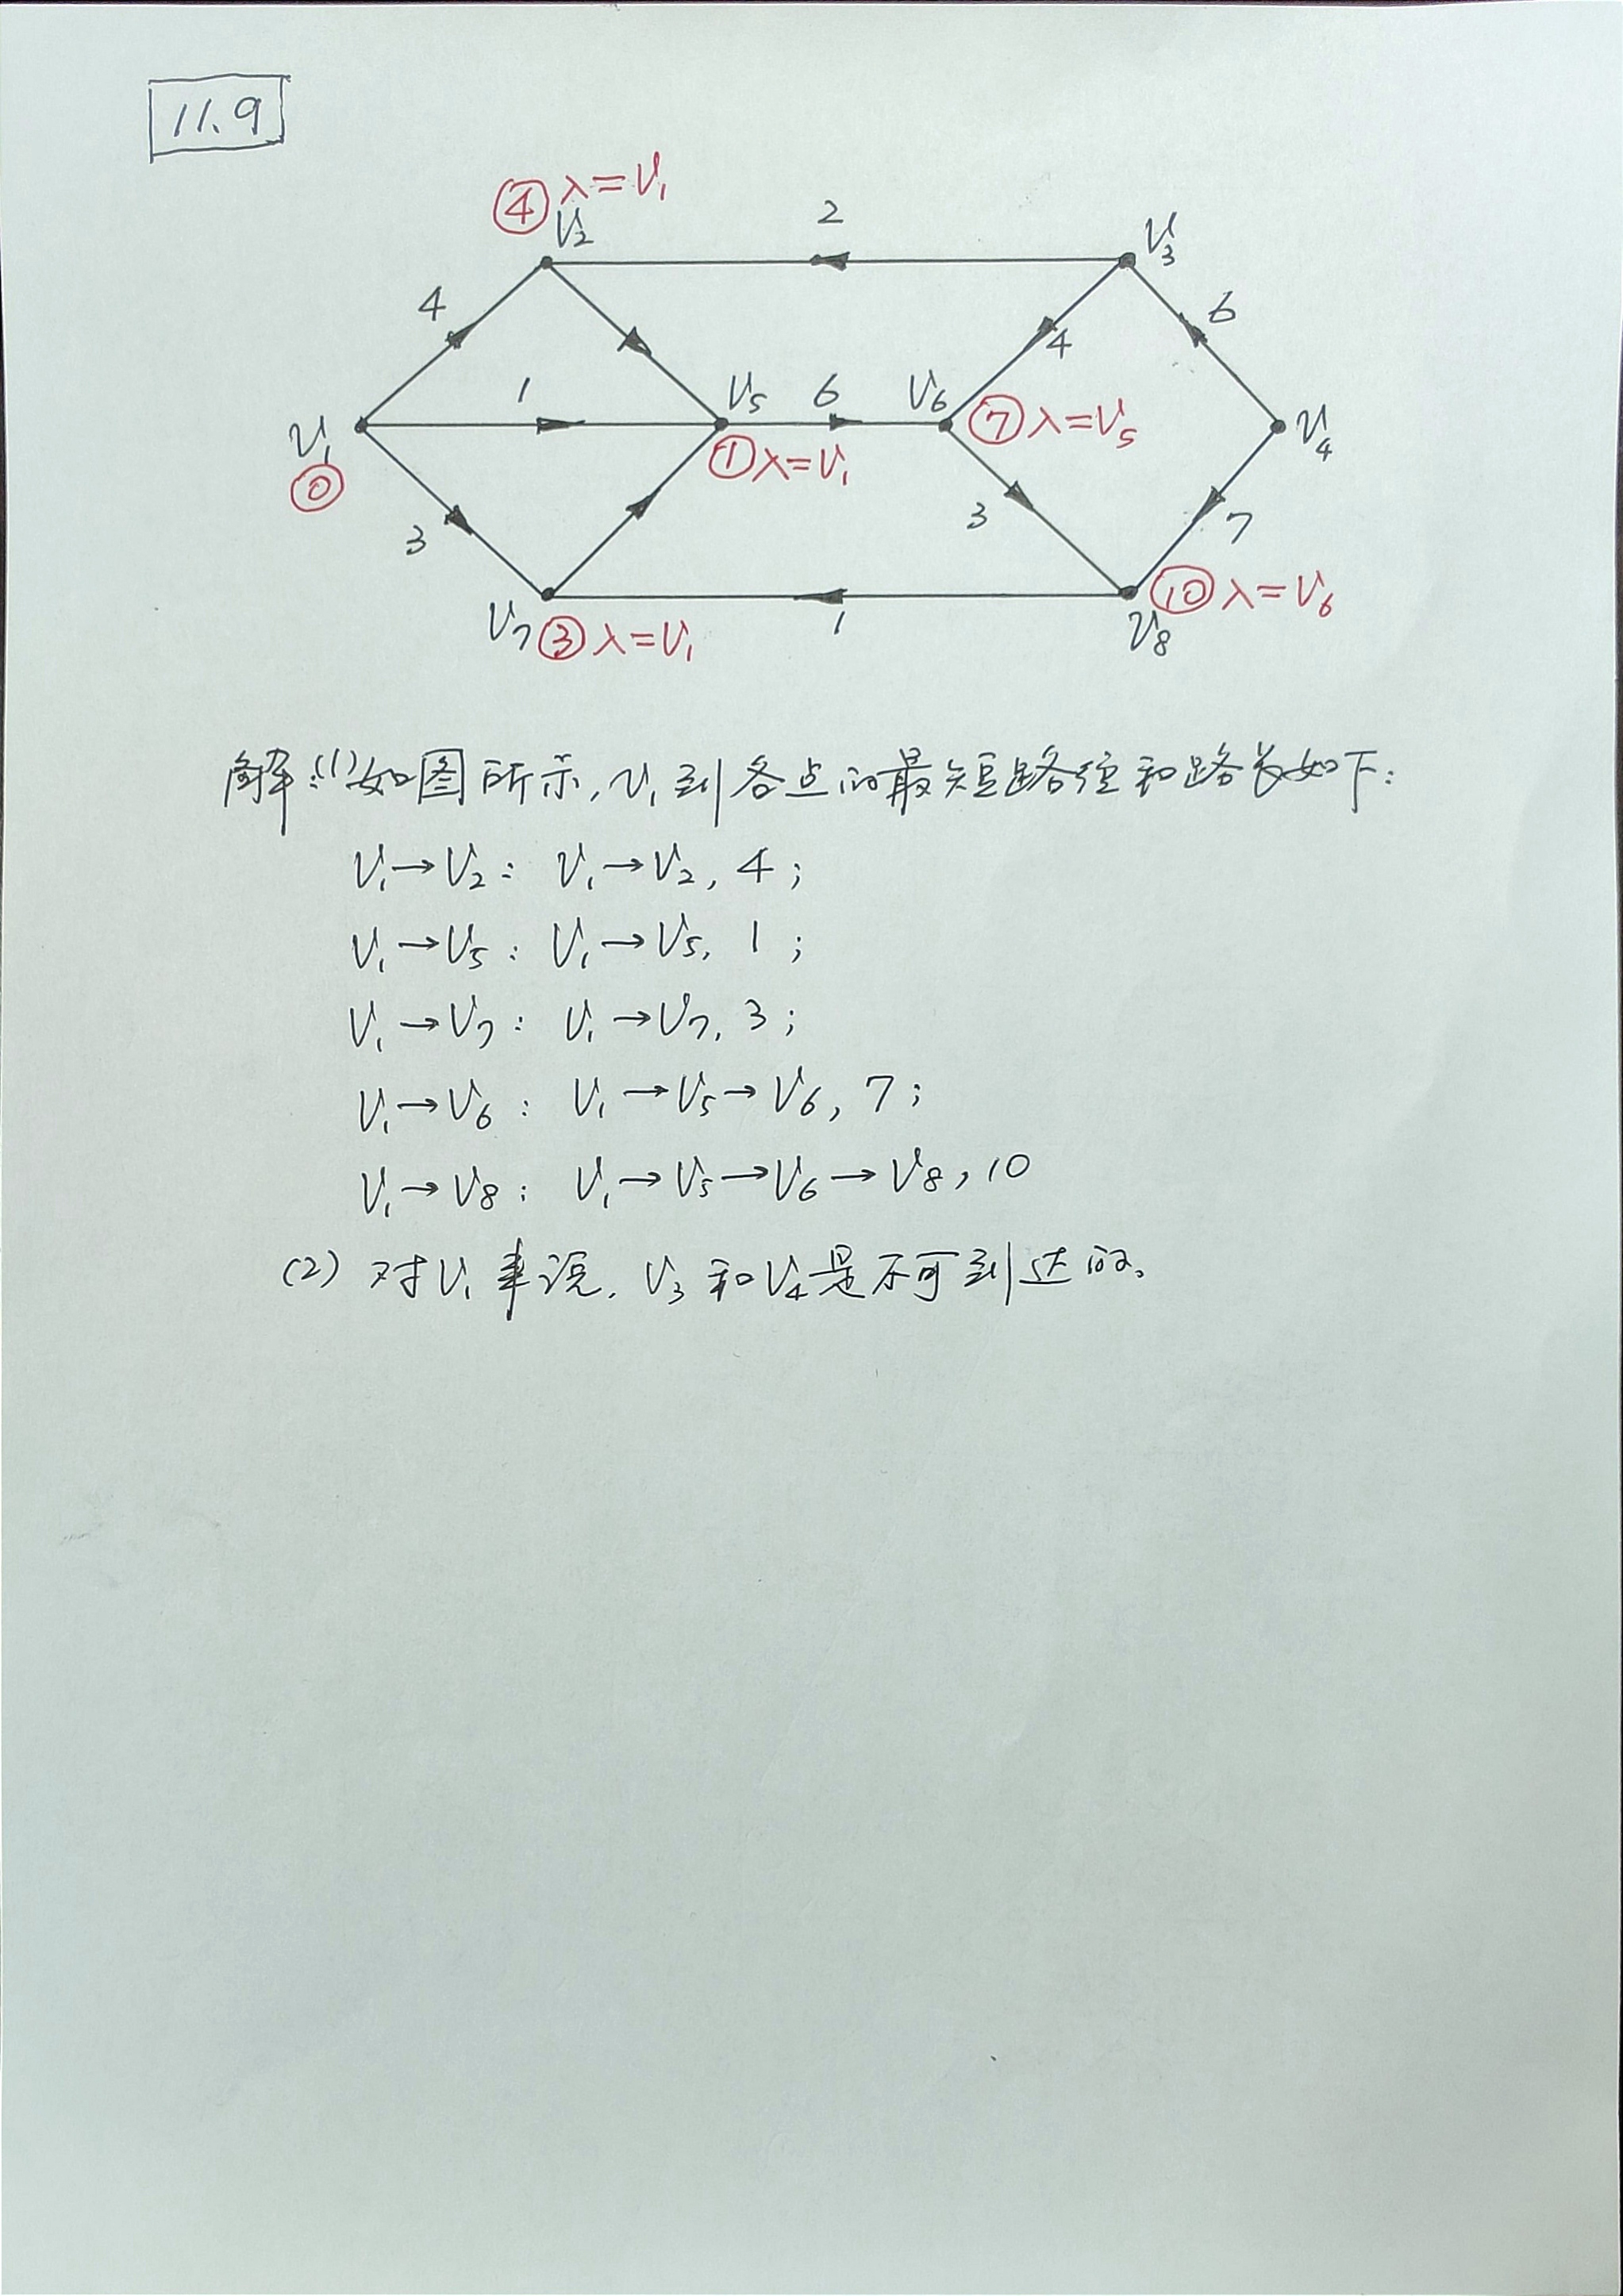 11.9
④ λ=V₁
V₂
2
V₃
4
6
4
1
V₅
6
V₆
⑦ λ=V₅
V₁
V₄
⓪
① λ=V₁
3
3
7
⑩ λ=V₆
V₇
③ λ=V₁
1
V₈
解:(1)如图所示,V₁到各点的最短路径和路长如下:
V₁→V₂: V₁→V₂, 4;
V₁→V₅: V₁→V₅, 1;
V₁→V₇: V₁→V₇, 3;
V₁→V₆: V₁→V₅→V₆, 7;
V₁→V₈: V₁→V₅→V₆→V₈, 10
(2) 对V₁来说, V₃和V₄是不可到达的。